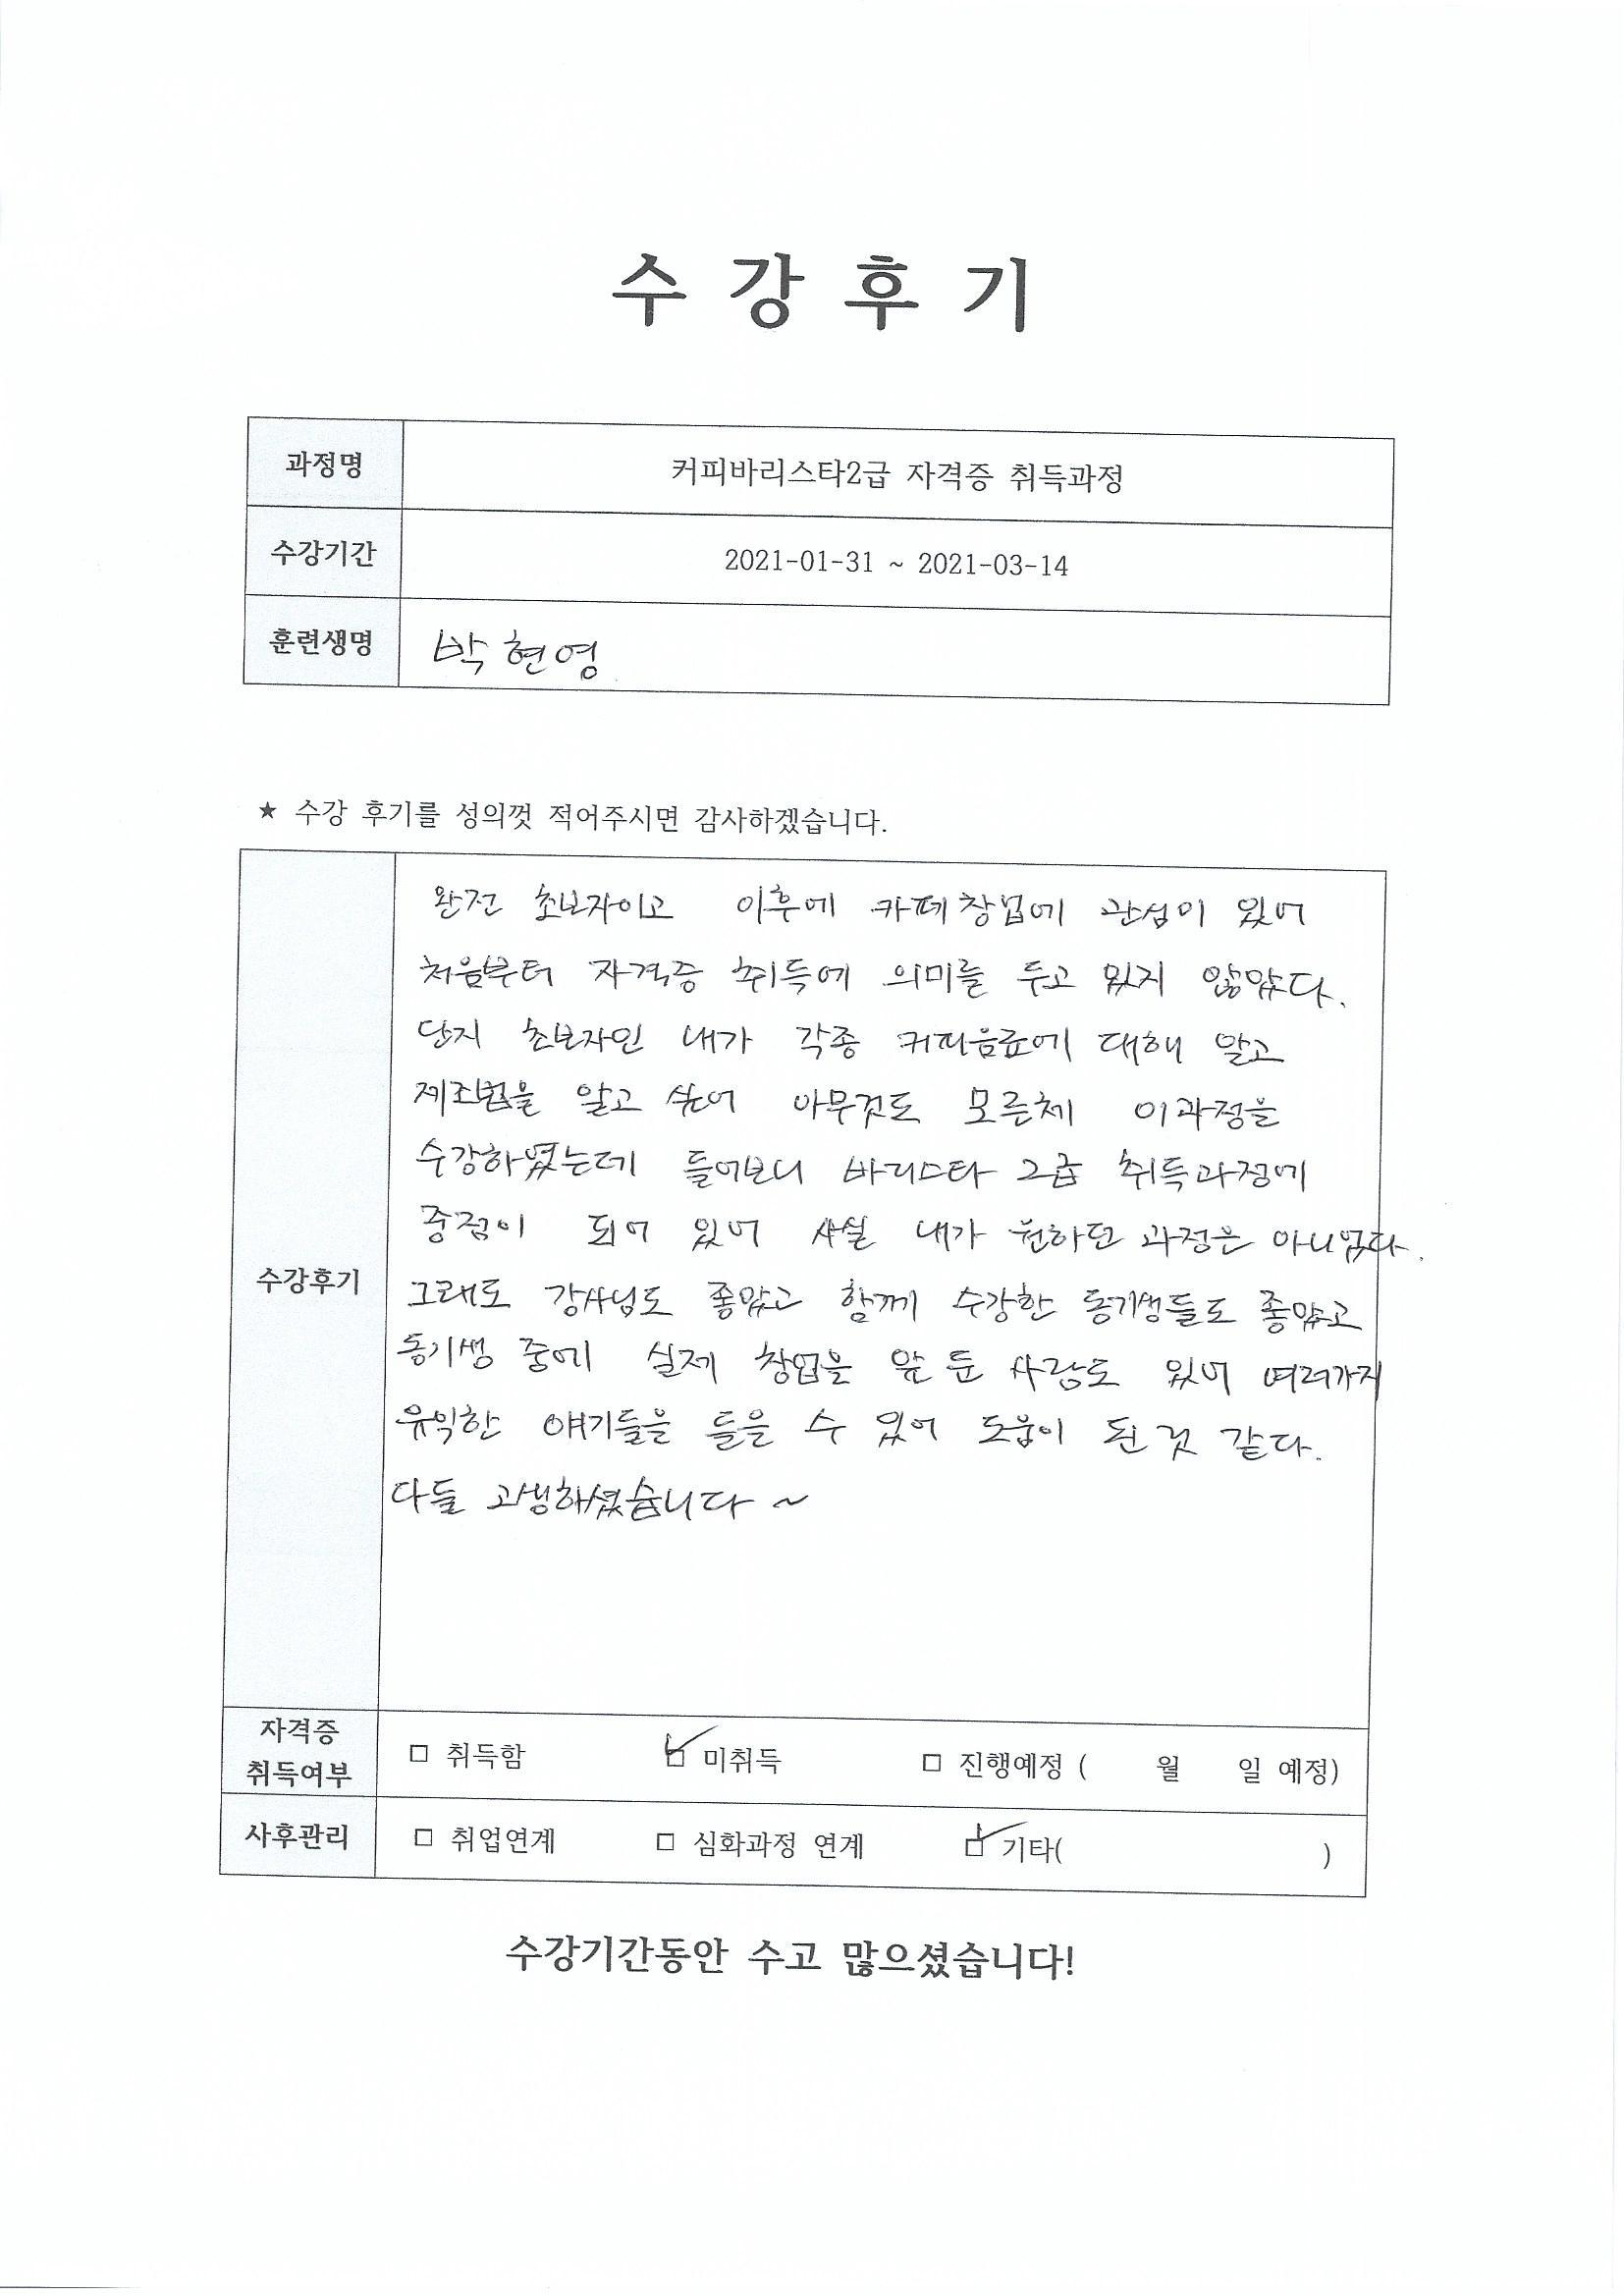 수 강 후 기
과정명 커피바리스타2급 자격증 취득과정
수강기간 2021-01-31 ~ 2021-03-14
훈련생명 박현영
★ 수강 후기를 성의껏 적어주시면 감사하겠습니다.
수강후기
완전 초보자이고 이후에 카페창업에 관심이 있어
처음부터 자격증 취득에 의미를 두고 있지 않았다.
단지 초보자인 내가 각종 커피음료에 대해 알고
제조법을 알고 싶어 아무것도 모른체 이과정을
수강하였는데 들어보니 바리스타 2급 취득과정에
중점이 되어 있어 사실 내가 원하던 과정은 아니었다.
그래도 강사님도 좋았고 함께 수강한 동기생들도 좋았고
동기생 중에 실제 창업을 앞 둔 사람도 있어 여러가지
유익한 얘기들을 들을 수 있어 도움이 된 것 같다.
다들 고생하셨습니다 ~
자격증
취득여부 □ 취득함 ☑ 미취득 □ 진행예정 ( 월 일 예정)
사후관리 □ 취업연계 □ 심화과정 연계 ☑ 기타( )
수강기간동안 수고 많으셨습니다!